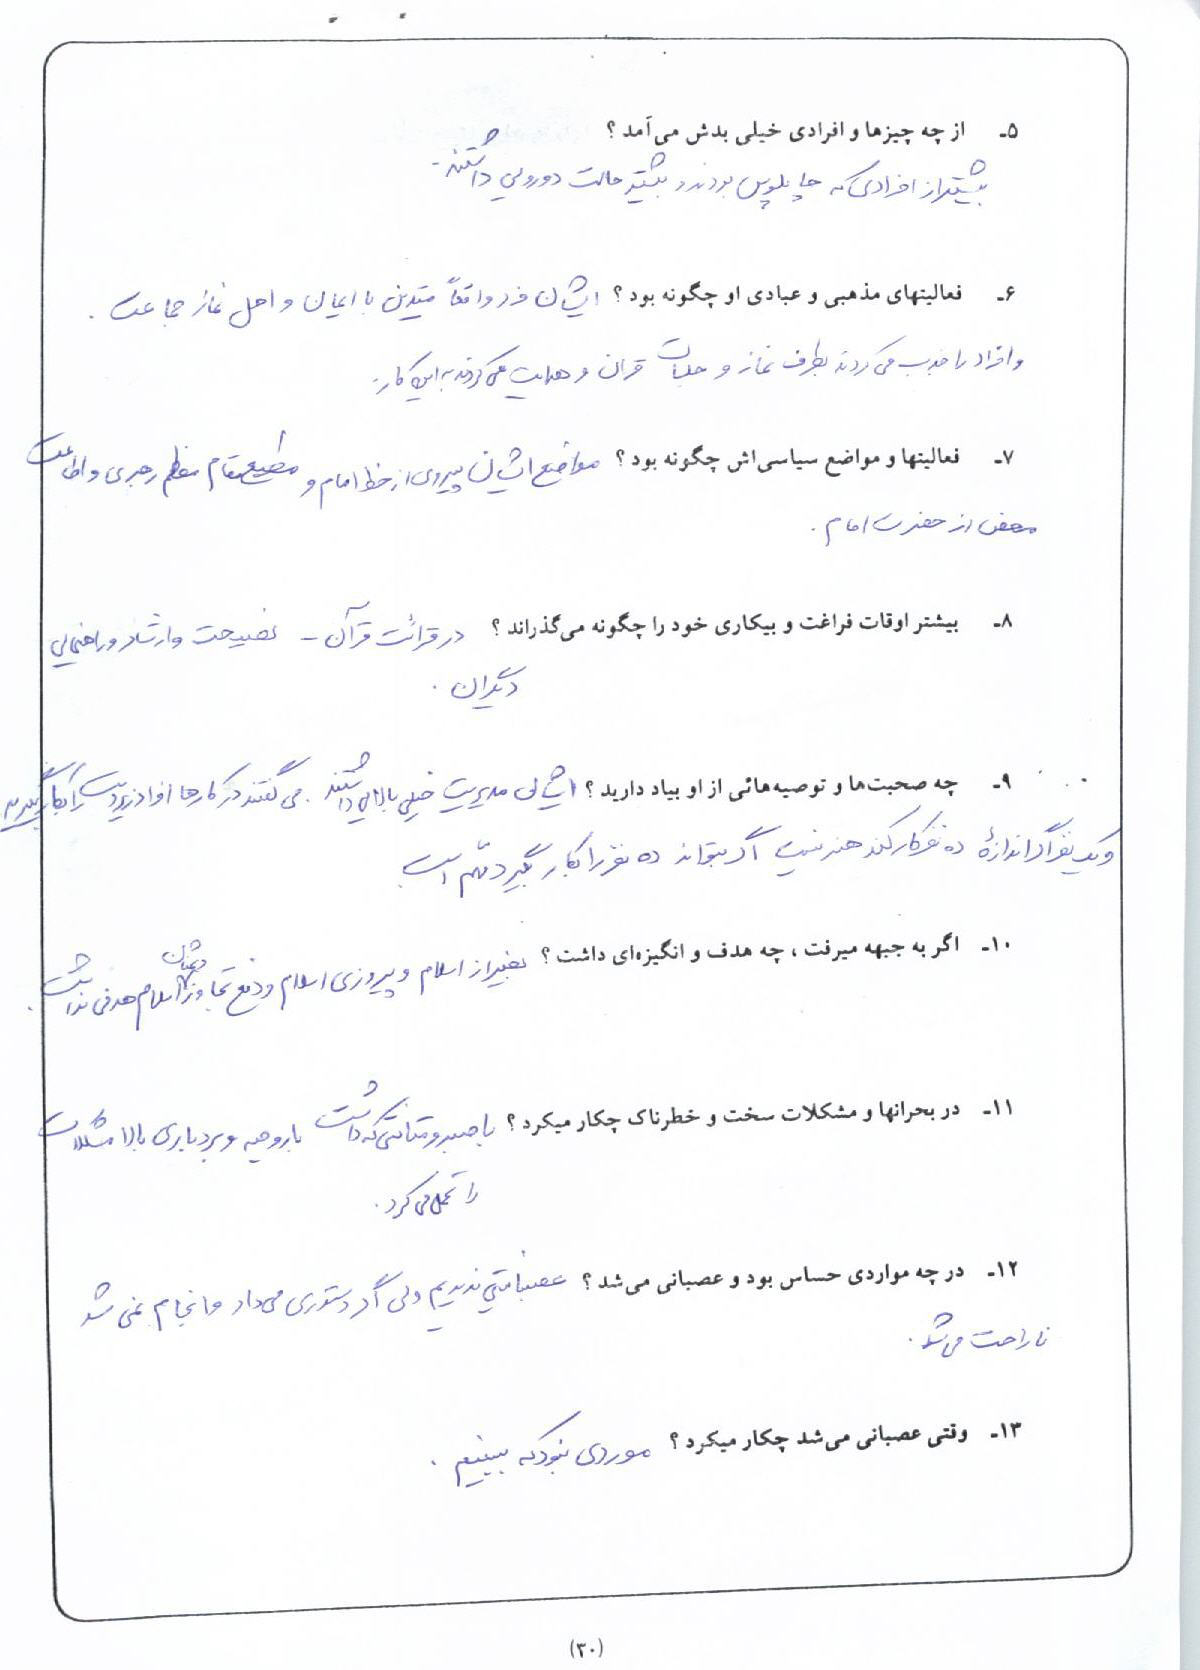 ۵ـ از چه چیزها و افرادی خیلی بدش می‌آمد ؟
بیشتر از افرادی که چاپلوس بودند و بیشتر حالت دورویی داشتند.
۶ـ فعالیتهای مذهبی و عبادی او چگونه بود ؟ ایشان فرد واقعاً متدین با ایمان و اهل نماز جماعت .
و افراد را جذب می‌کردند بطرف نماز و جلسات قرآن و هدایت می‌کردند به این کار.
۷ـ فعالیتها و مواضع سیاسی‌اش چگونه بود ؟ مواضع ایشان پیروی از خط امام و مطیع مقام معظم رهبری و اطاعت
محض از حضرت امام .
۸ـ بیشتر اوقات فراغت و بیکاری خود را چگونه می‌گذراند ؟ در قرائت قرآن – نصیحت و ارشاد و راهنمایی
دیگران .
۹ـ چه صحبت‌ها و توصیه‌هائی از او بیاد دارید ؟ ایشان مدیریت خیلی بالایی داشتند . می گفتند در کارها افراد زیردست را بکار بگیرید
و یک نفر اگر اندازهٔ ده نفر کار کند هنر نیست اگر بتواند ده نفر را بکار بگیرد مهم است
۱۰ـ اگر به جبهه میرفت ، چه هدف و انگیزه‌ای داشت ؟ بغیر از اسلام و پیروزی اسلام و دفع تجاوز دشمنان اسلام هدفی نداشت .
۱۱ـ در بحرانها و مشکلات سخت و خطرناک چکار میکرد ؟ با صبر و متانتی که داشت با روحیه و بردباری بالا مشکلات
را تحمل می کرد .
۱۲ـ در چه مواردی حساس بود و عصبانی می‌شد ؟ عصبانیتی ندیدیم ولی اگر دستوری می‌داد و انجام نمی شد
ناراحت می شد .
۱۳ـ وقتی عصبانی می‌شد چکار میکرد ؟ موردی نبود که ببینیم .
(۳۰)